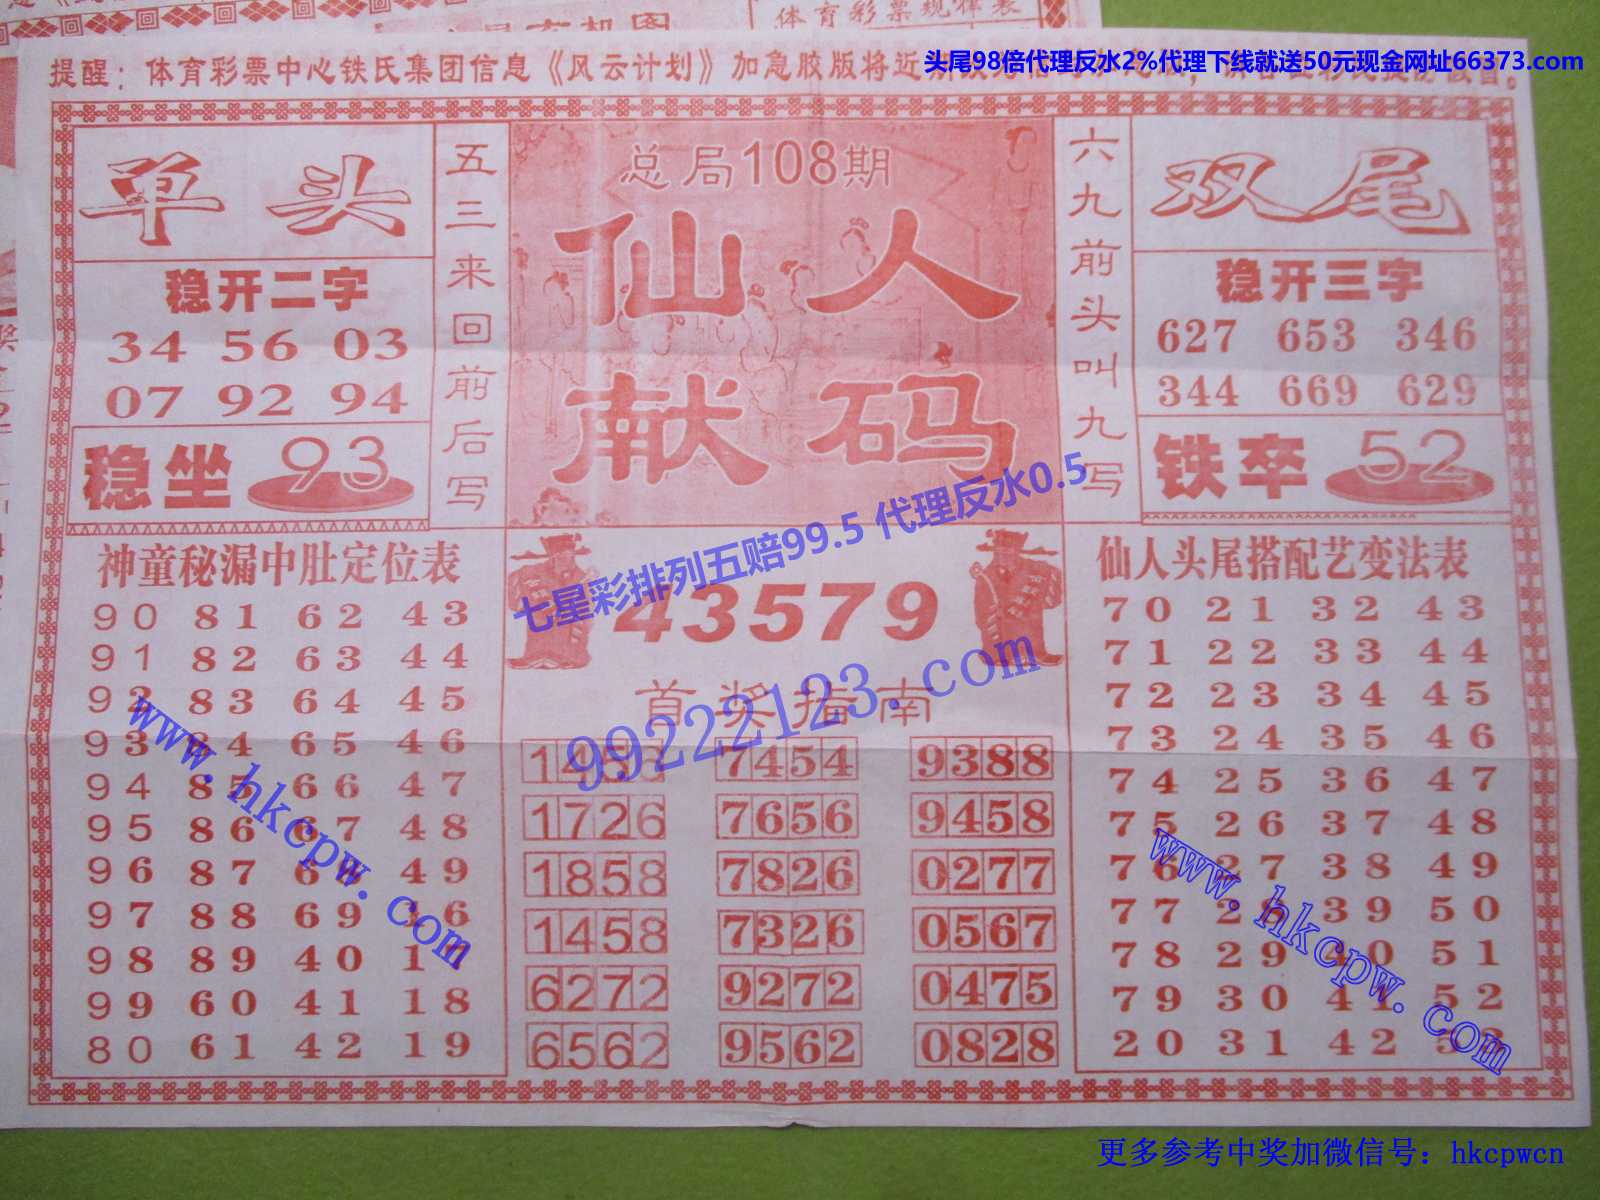 体育彩票规律表
提醒：体育彩票中心铁氏集团信息《风云计划》加急胶版将近
头尾98倍代理反水2%代理下线就送50元现金网址66373.com
单头
稳开二字
34 56 03
07 92 94
稳坐 93
五三来回前后写
总局108期
仙人
献码
六九前头叫九写
双尾
稳开三字
627 653 346
344 669 629
铁卒 52
七星彩排列五赔99.5 代理反水0.5
43579
99222123.com
首奖指南
1458 7454 9388
1726 7656 9458
1858 7826 0277
1458 7326 0567
6272 9272 0475
6562 9562 0828
神童秘漏中肚定位表
90 81 62 43
91 82 63 44
92 83 64 45
93 84 65 46
94 85 66 47
95 86 67 48
96 87 68 49
97 88 69 16
98 89 40 17
99 60 41 18
80 61 42 19
www.hkcpw.com
仙人头尾搭配艺变法表
70 21 32 43
71 22 33 44
72 23 34 45
73 24 35 46
74 25 36 47
75 26 37 48
76 27 38 49
77 28 39 50
78 29 40 51
79 30 41 52
20 31 42 53
www.hkcpw.com
更多参考中奖加微信号：hkcpwcn